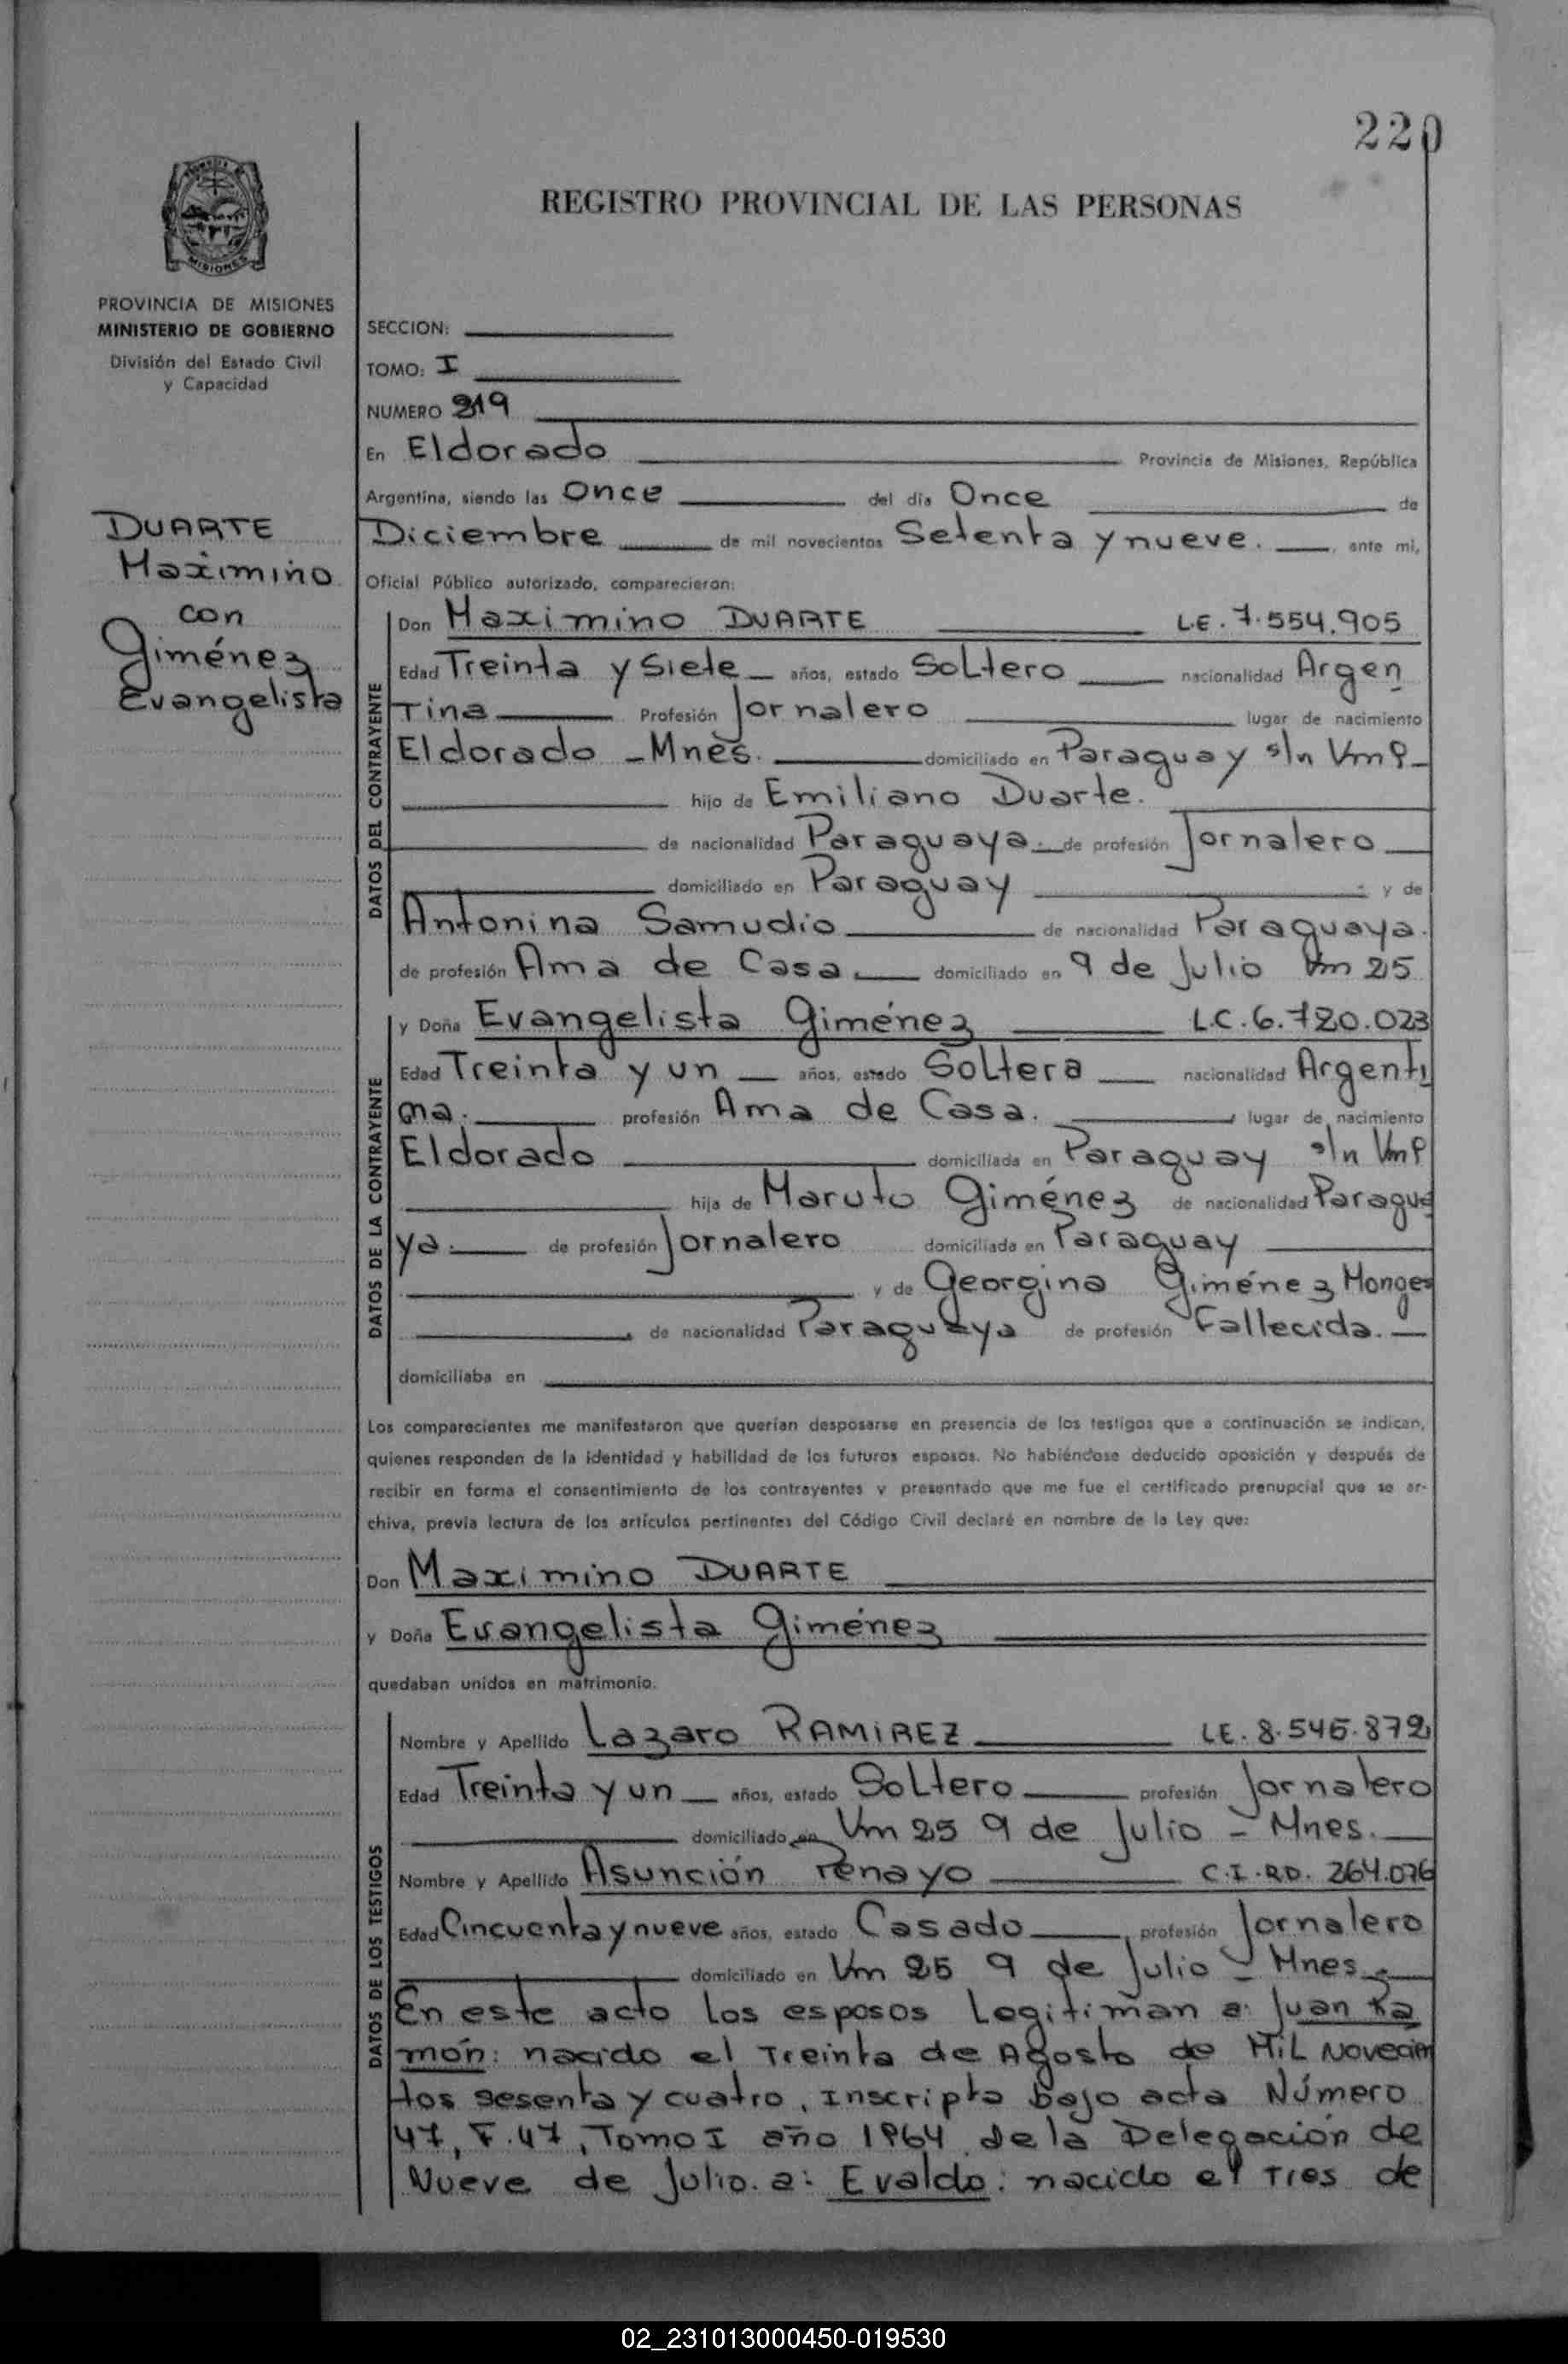 220
REGISTRO PROVINCIAL DE LAS PERSONAS
MISIONES
PROVINCIA DE MISIONES
MINISTERIO DE GOBIERNO
División del Estado Civil
y Capacidad
DUARTE
Maximino
con
Giménez
Evangelista
SECCION:
TOMO: I
NUMERO 219
En Eldorado Provincia de Misiones, República
Argentina, siendo las Once del día Once de
Diciembre de mil novecientos Setenta y nueve. ante mi,
Oficial Público autorizado, comparecieron:
DATOS DEL CONTRAYENTE
Don Maximino DUARTE L.E. 7.554.905
Edad Treinta y Siete años, estado Soltero nacionalidad Argen
Tina Profesión Jornalero lugar de nacimiento
Eldorado - Mnes. domiciliado en Paraguay s/n
hijo de Emiliano Duarte.
de nacionalidad Paraguaya. de profesión Jornalero
domiciliado en Paraguay y de
Antonina Samudio de nacionalidad Paraguaya.
de profesión Ama de Casa. domiciliado en 9 de Julio Km 25
DATOS DE LA CONTRAYENTE
y Doña Evangelista Giménez L.C. 6.720.023
Edad Treinta y un años, estado Soltera nacionalidad Argenti
na. profesión Ama de Casa. lugar de nacimiento
Eldorado domiciliada en Paraguay s/n
hija de Maruto Giménez de nacionalidad Paragua
ya. de profesión Jornalero domiciliada en Paraguay
y de Georgina Giménez Monges
de nacionalidad Paraguaya de profesión Fallecida.
domiciliaba en
Los comparecientes me manifestaron que querían desposarse en presencia de los testigos que a continuación se indican,
quienes responden de la identidad y habilidad de los futuros esposos. No habiéndose deducido oposición y después de
recibir en forma el consentimiento de los contrayentes y presentado que me fue el certificado prenupcial que se ar-
chiva, previa lectura de los artículos pertinentes del Código Civil declaré en nombre de la Ley que:
Don Maximino DUARTE
y Doña Evangelista Giménez
quedaban unidos en matrimonio.
DATOS DE LOS TESTIGOS
Nombre y Apellido Lazaro RAMIREZ L.E. 8.546.872
Edad Treinta y un años, estado Soltero profesión Jornalero
domiciliado en Km 25 9 de Julio - Mnes.
Nombre y Apellido Asunción Penayo C.I.RD. 264.076
Edad Cincuenta y nueve años, estado Casado profesión Jornalero
domiciliado en Km 25 9 de Julio - Mnes.
En este acto los esposos Legitiman a: Juan Ra
món: nacido el Treinta de Agosto de Mil Novecien
tos sesenta y cuatro, Inscripto bajo acta Número
47, F.47, Tomo I año 1964 de la Delegación de
Nueve de Julio. a: Evaldo: nacido el Tres de
02_231013000450-019530